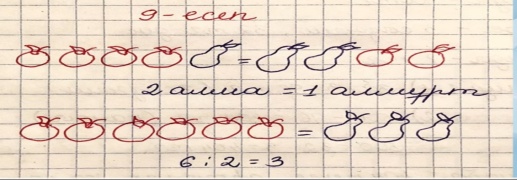 9-есеп
=
2 алма = 1 алмұрт
=
6 : 2 = 3